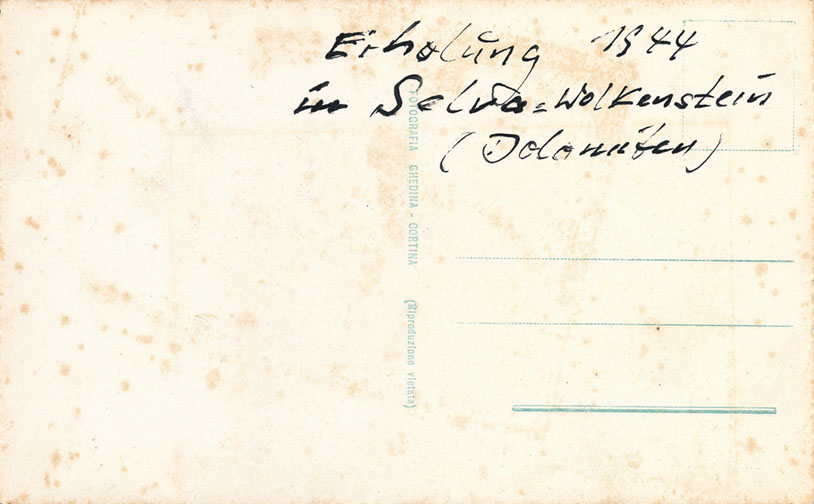 Erholung 1944
in Selva=Wolkenstein
(Dolomiten)
FOTOGRAFIA GHEDINA - CORTINA (Riproduzione vietata)